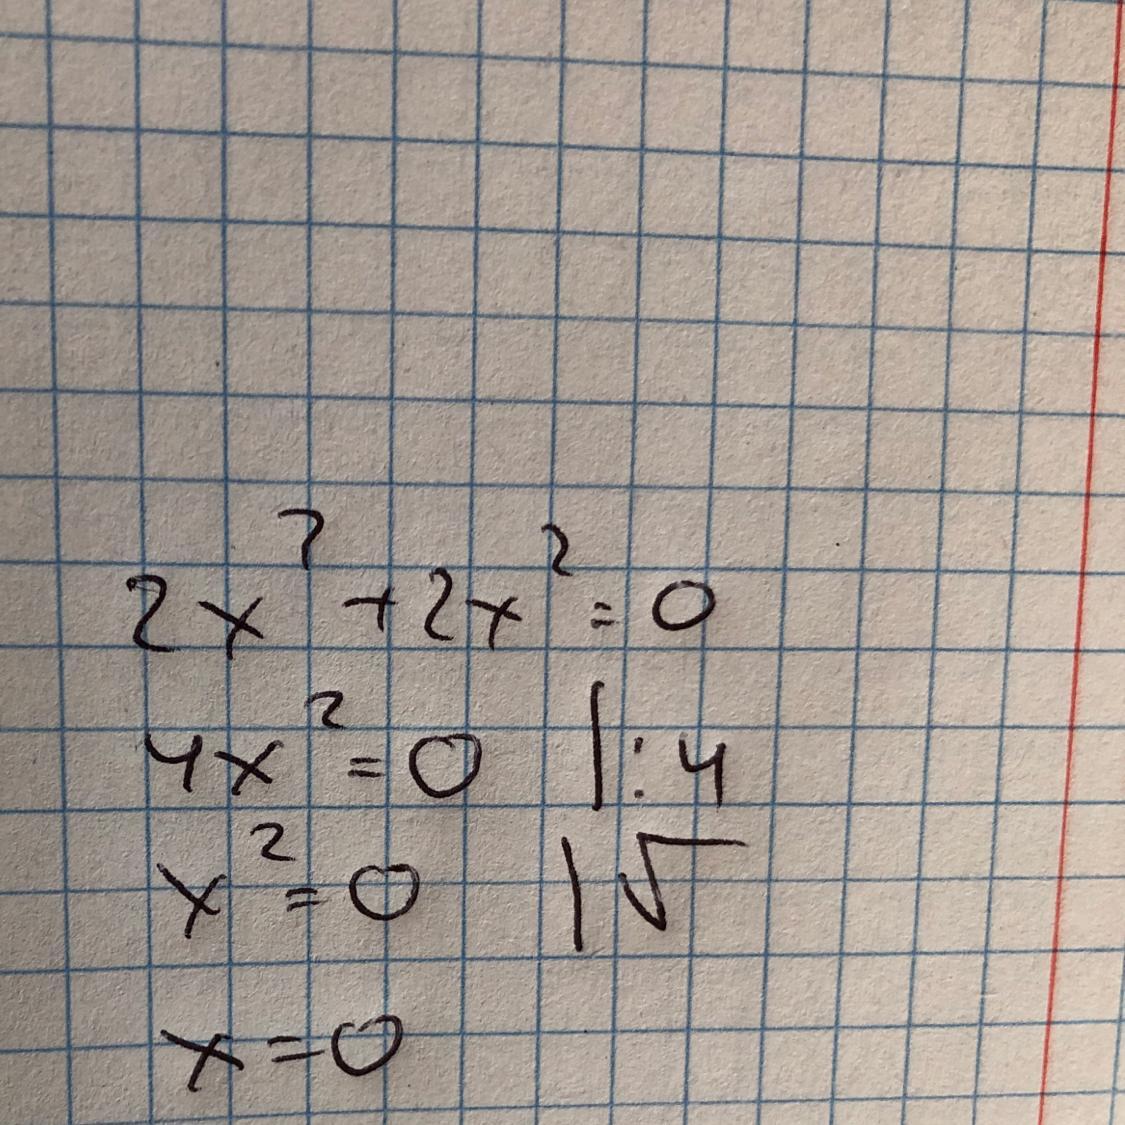 2x² + 2x² = 0
4x² = 0 |:4
x² = 0 |√
x = 0